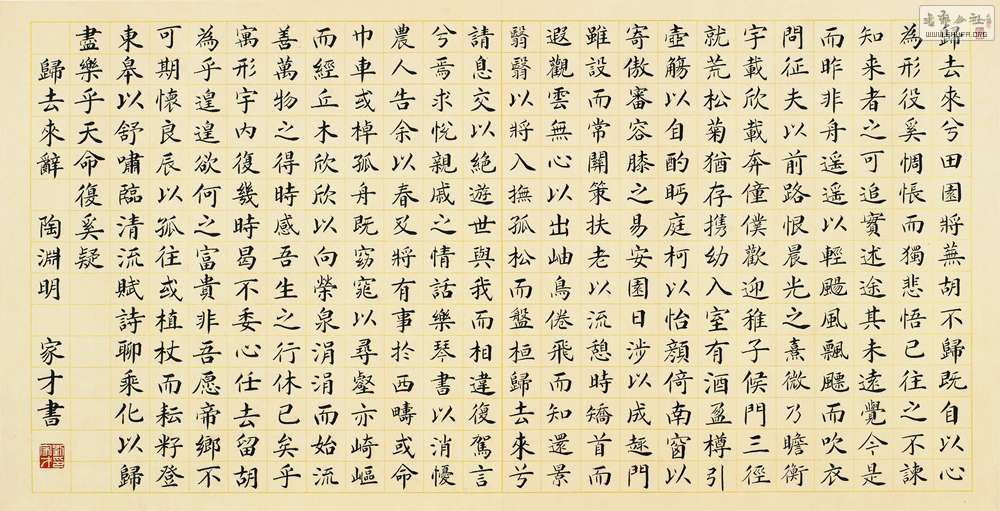 歸去來兮田園將蕪胡不歸既自以心
為形役奚惆悵而獨悲悟已往之不諫
知来者之可追實述途其未遠覺今是
而昨非舟遥遥以輕颺風飄飄而吹衣
問征夫以前路恨晨光之熹微乃瞻衡
宇載欣載奔僮僕歡迎稚子候門三徑
就荒松菊猶存携幼入室有酒盈樽引
壺觴以自酌眄庭柯以怡顏倚南窗以
寄傲審容膝之易安園日涉以成趣門
雖設而常關策扶老以流憩時矯首而
遐觀雲無心以出岫鳥倦飛而知還景
翳翳以將入撫孤松而盤桓歸去来兮
請息交以絕遊世與我而相違復駕言
兮焉求悅親戚之情話樂琴書以消憂
農人告余以春及將有事於西疇或命
巾車或棹孤舟既窈窕以尋壑亦崎嶇
而經丘木欣欣以向榮泉涓涓而始流
善萬物之得時感吾生之行休已矣乎
寓形宇內復幾時曷不委心任去留胡
為乎遑遑欲何之富貴非吾愿帝鄉不
可期懷良辰以孤往或植杖而耘耔登
東皋以舒嘯臨清流賦詩聊乘化以歸
盡樂乎天命復奚疑
歸去來辭 陶淵明 家才書
WWW.SHUFA.ORG